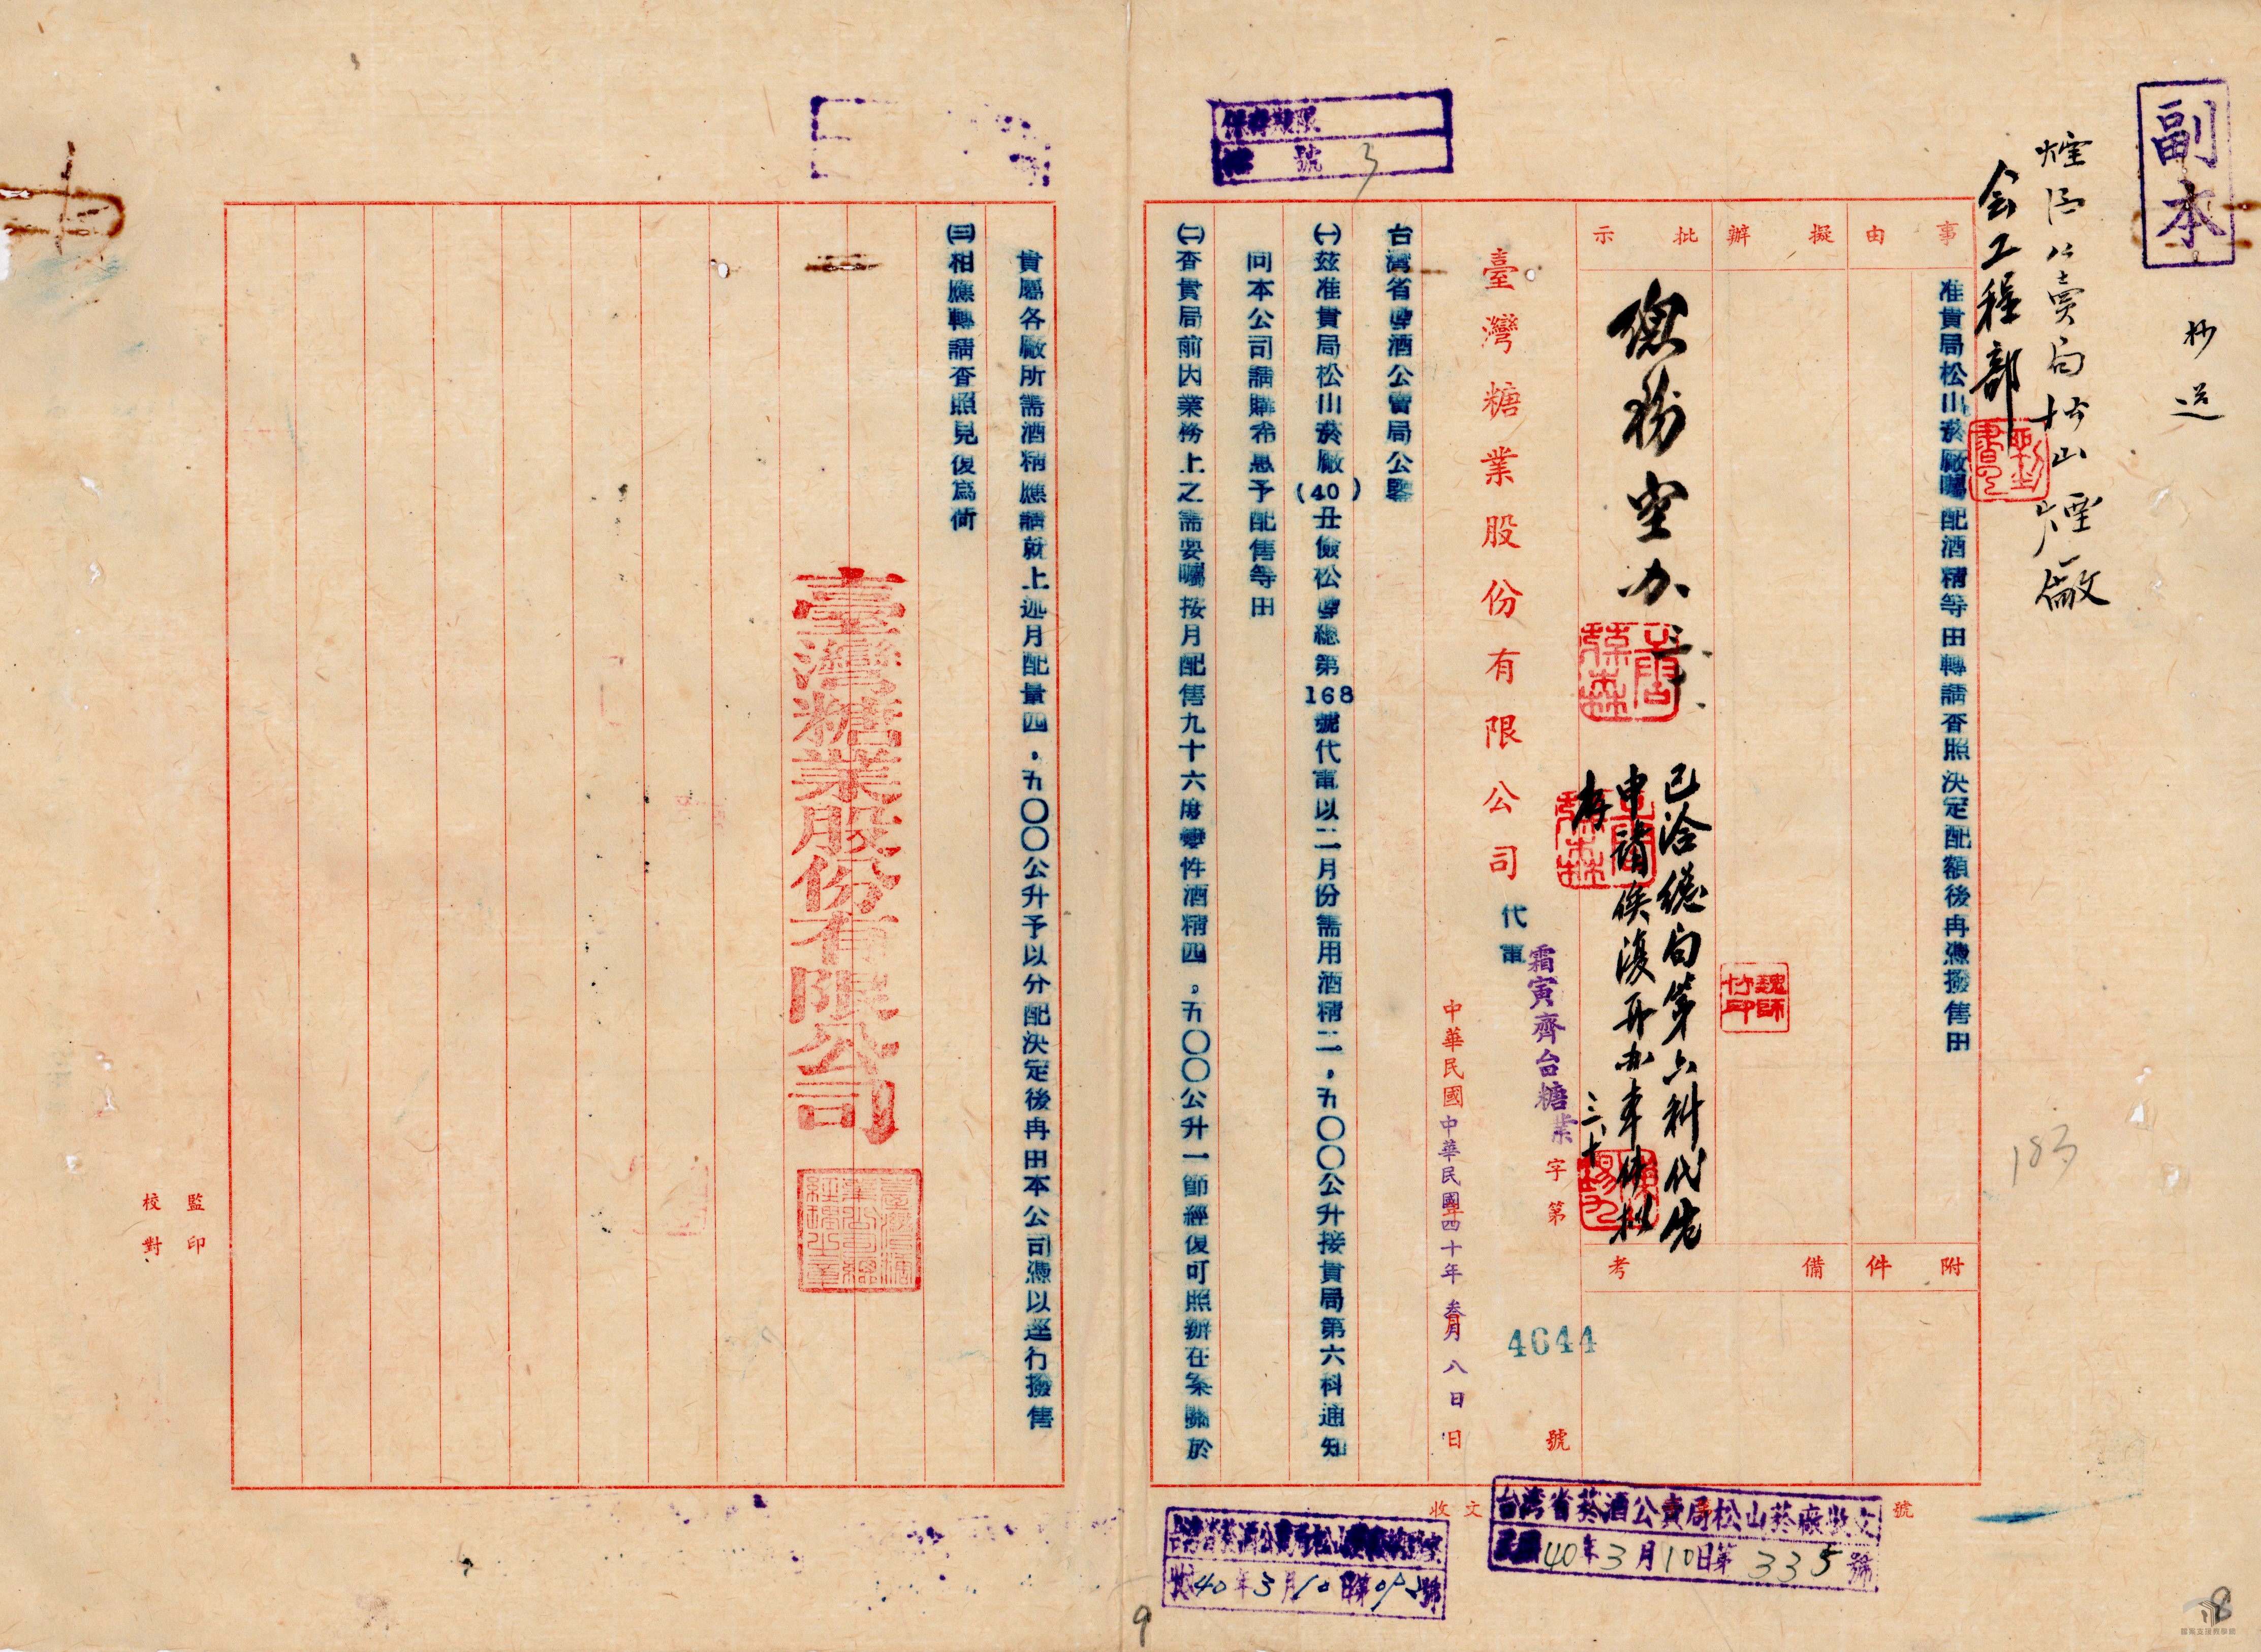 副本
抄送
煙酒公賣局松山煙廠
会工程部
事由
准貴局松山菸廠囑配酒精等由轉請查照決定配額後再憑撥售由
擬辦
批示
總務室办
已洽總局第六科代先
申請俟復再办本件擬
存
三、十
魏師竹印
附件
備考
臺灣糖業股份有限公司
代電
霜寅齊台糖業
字第
4644
號
中華民國
中華民國四十年叁月八日
日
台灣省煙酒公賣局公鑒
㈠茲准貴局松山菸廠(40)丑儉松煙總第168號代電以二月份需用酒精二,五〇〇公升接貴局第六科通知
向本公司請購希惠予配售等由
㈡查貴局前因業務上之需要囑按月配售九十六度變性酒精四,五〇〇公升一節經復可照辦在案關於
貴屬各廠所需酒精應請就上述月配量四,五〇〇公升予以分配決定後再由本公司憑以逕行撥售
㈢相應轉請查照見復為荷
臺灣糖業股份有限公司
監印
校對
保存期限
號 3
收文
號
台灣省菸酒公賣局松山菸廠收文
40年3月10日第335號
40年3月10日第
號
183
9
8